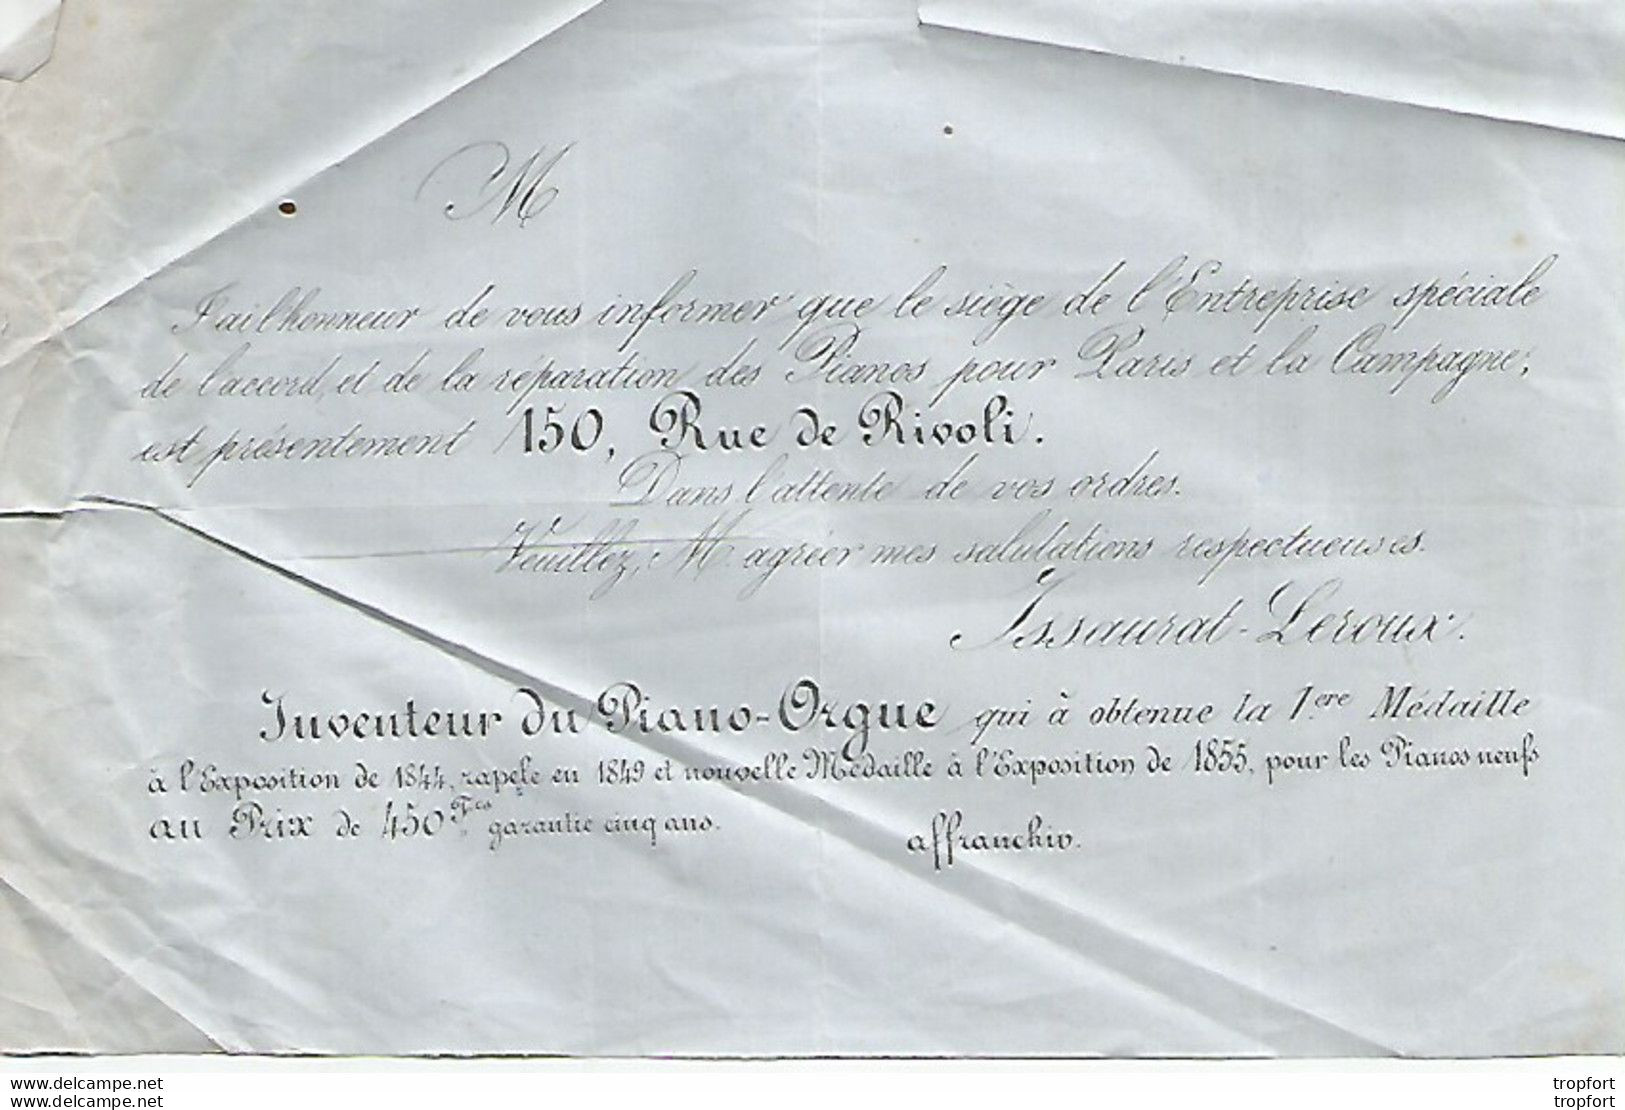 M
J'ai l'honneur de vous informer que le siège de l'Entreprise spéciale
de l'accord, et de la réparation des Pianos pour Paris et la Campagne;
est présentement 150, Rue de Rivoli.
Dans l'attente de vos ordres.
Veuillez, M. agréer mes salutations respectueuses.
Issaurat-Leroux.
Inventeur du Piano-Orgue qui à obtenue la 1.ere Médaille
à l'Exposition de 1844, rapele en 1849 et nouvelle Médaille à l'Exposition de 1855, pour les Pianos neufs
au Prix de 450 F.cs garantie cinq ans.
affranchir.
www.delcampe.net
www.delcampe.net
tropfort
tropfort